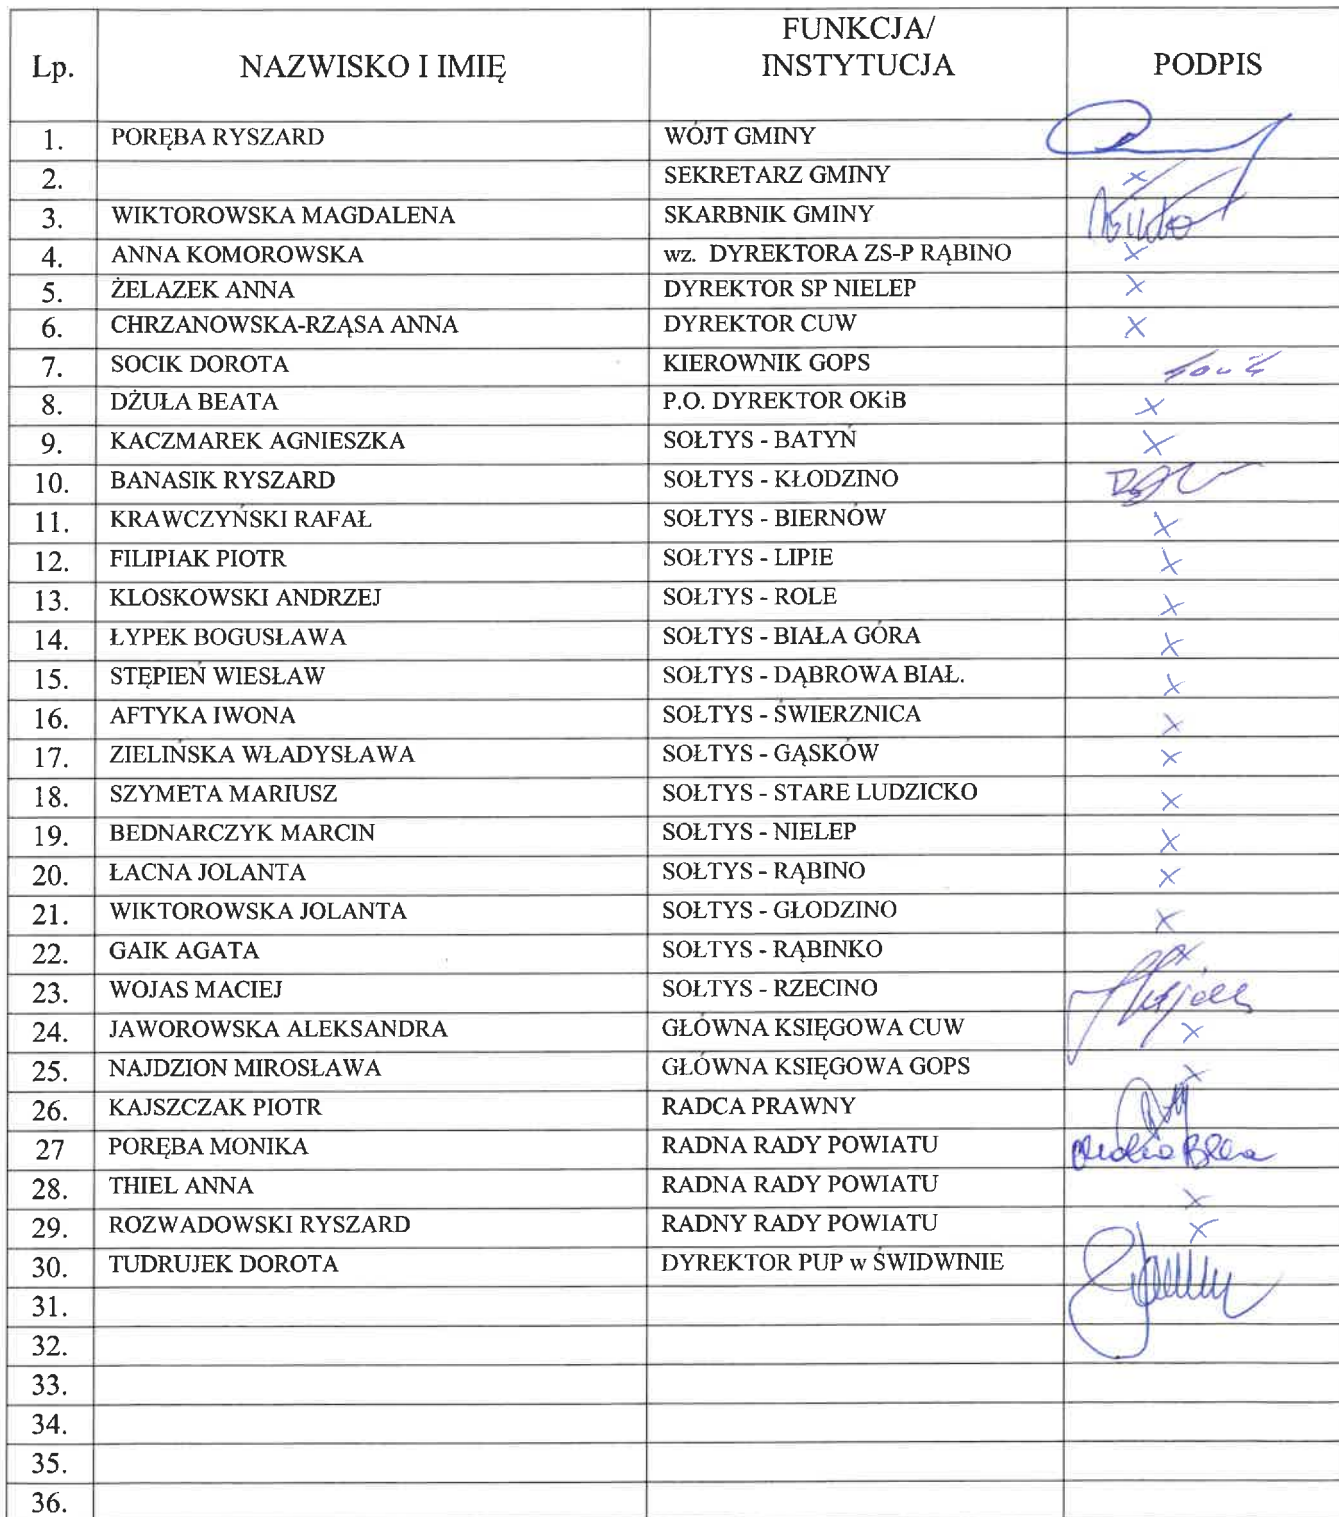 Lp. NAZWISKO I IMIĘ FUNKCJA/ INSTYTUCJA PODPIS
1. PORĘBA RYSZARD WÓJT GMINY
2. SEKRETARZ GMINY x
3. WIKTOROWSKA MAGDALENA SKARBNIK GMINY
4. ANNA KOMOROWSKA wz. DYREKTORA ZS-P RĄBINO x
5. ŻELAZEK ANNA DYREKTOR SP NIELEP x
6. CHRZANOWSKA-RZĄSA ANNA DYREKTOR CUW x
7. SOCIK DOROTA KIEROWNIK GOPS
8. DŻUŁA BEATA P.O. DYREKTOR OKiB x
9. KACZMAREK AGNIESZKA SOŁTYS - BATYŃ x
10. BANASIK RYSZARD SOŁTYS - KŁODZINO
11. KRAWCZYŃSKI RAFAŁ SOŁTYS - BIERNÓW x
12. FILIPIAK PIOTR SOŁTYS - LIPIE x
13. KLOSKOWSKI ANDRZEJ SOŁTYS - ROLE x
14. ŁYPEK BOGUSŁAWA SOŁTYS - BIAŁA GÓRA x
15. STĘPIEŃ WIESŁAW SOŁTYS - DĄBROWA BIAŁ. x
16. AFTYKA IWONA SOŁTYS - ŚWIERZNICA x
17. ZIELIŃSKA WŁADYSŁAWA SOŁTYS - GĄSKÓW x
18. SZYMETA MARIUSZ SOŁTYS - STARE LUDZICKO x
19. BEDNARCZYK MARCIN SOŁTYS - NIELEP x
20. ŁACNA JOLANTA SOŁTYS - RĄBINO x
21. WIKTOROWSKA JOLANTA SOŁTYS - GŁODZINO x
22. GAIK AGATA SOŁTYS - RĄBINKO x
23. WOJAS MACIEJ SOŁTYS - RZECINO
24. JAWOROWSKA ALEKSANDRA GŁÓWNA KSIĘGOWA CUW x
25. NAJDZION MIROSŁAWA GŁÓWNA KSIĘGOWA GOPS x
26. KAJSZCZAK PIOTR RADCA PRAWNY
27 PORĘBA MONIKA RADNA RADY POWIATU
28. THIEL ANNA RADNA RADY POWIATU x
29. ROZWADOWSKI RYSZARD RADNY RADY POWIATU x
30. TUDRUJEK DOROTA DYREKTOR PUP w ŚWIDWINIE
31.
32.
33.
34.
35.
36.